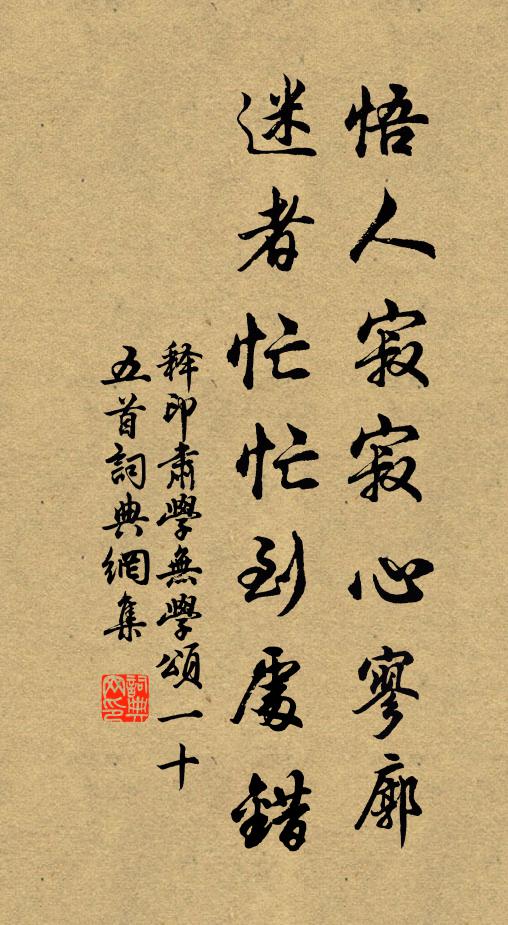 悟人寂寂心寥廓
迷者忙忙到處錯
释印肃學無學頌一十
五首詞典網集
詞典网印